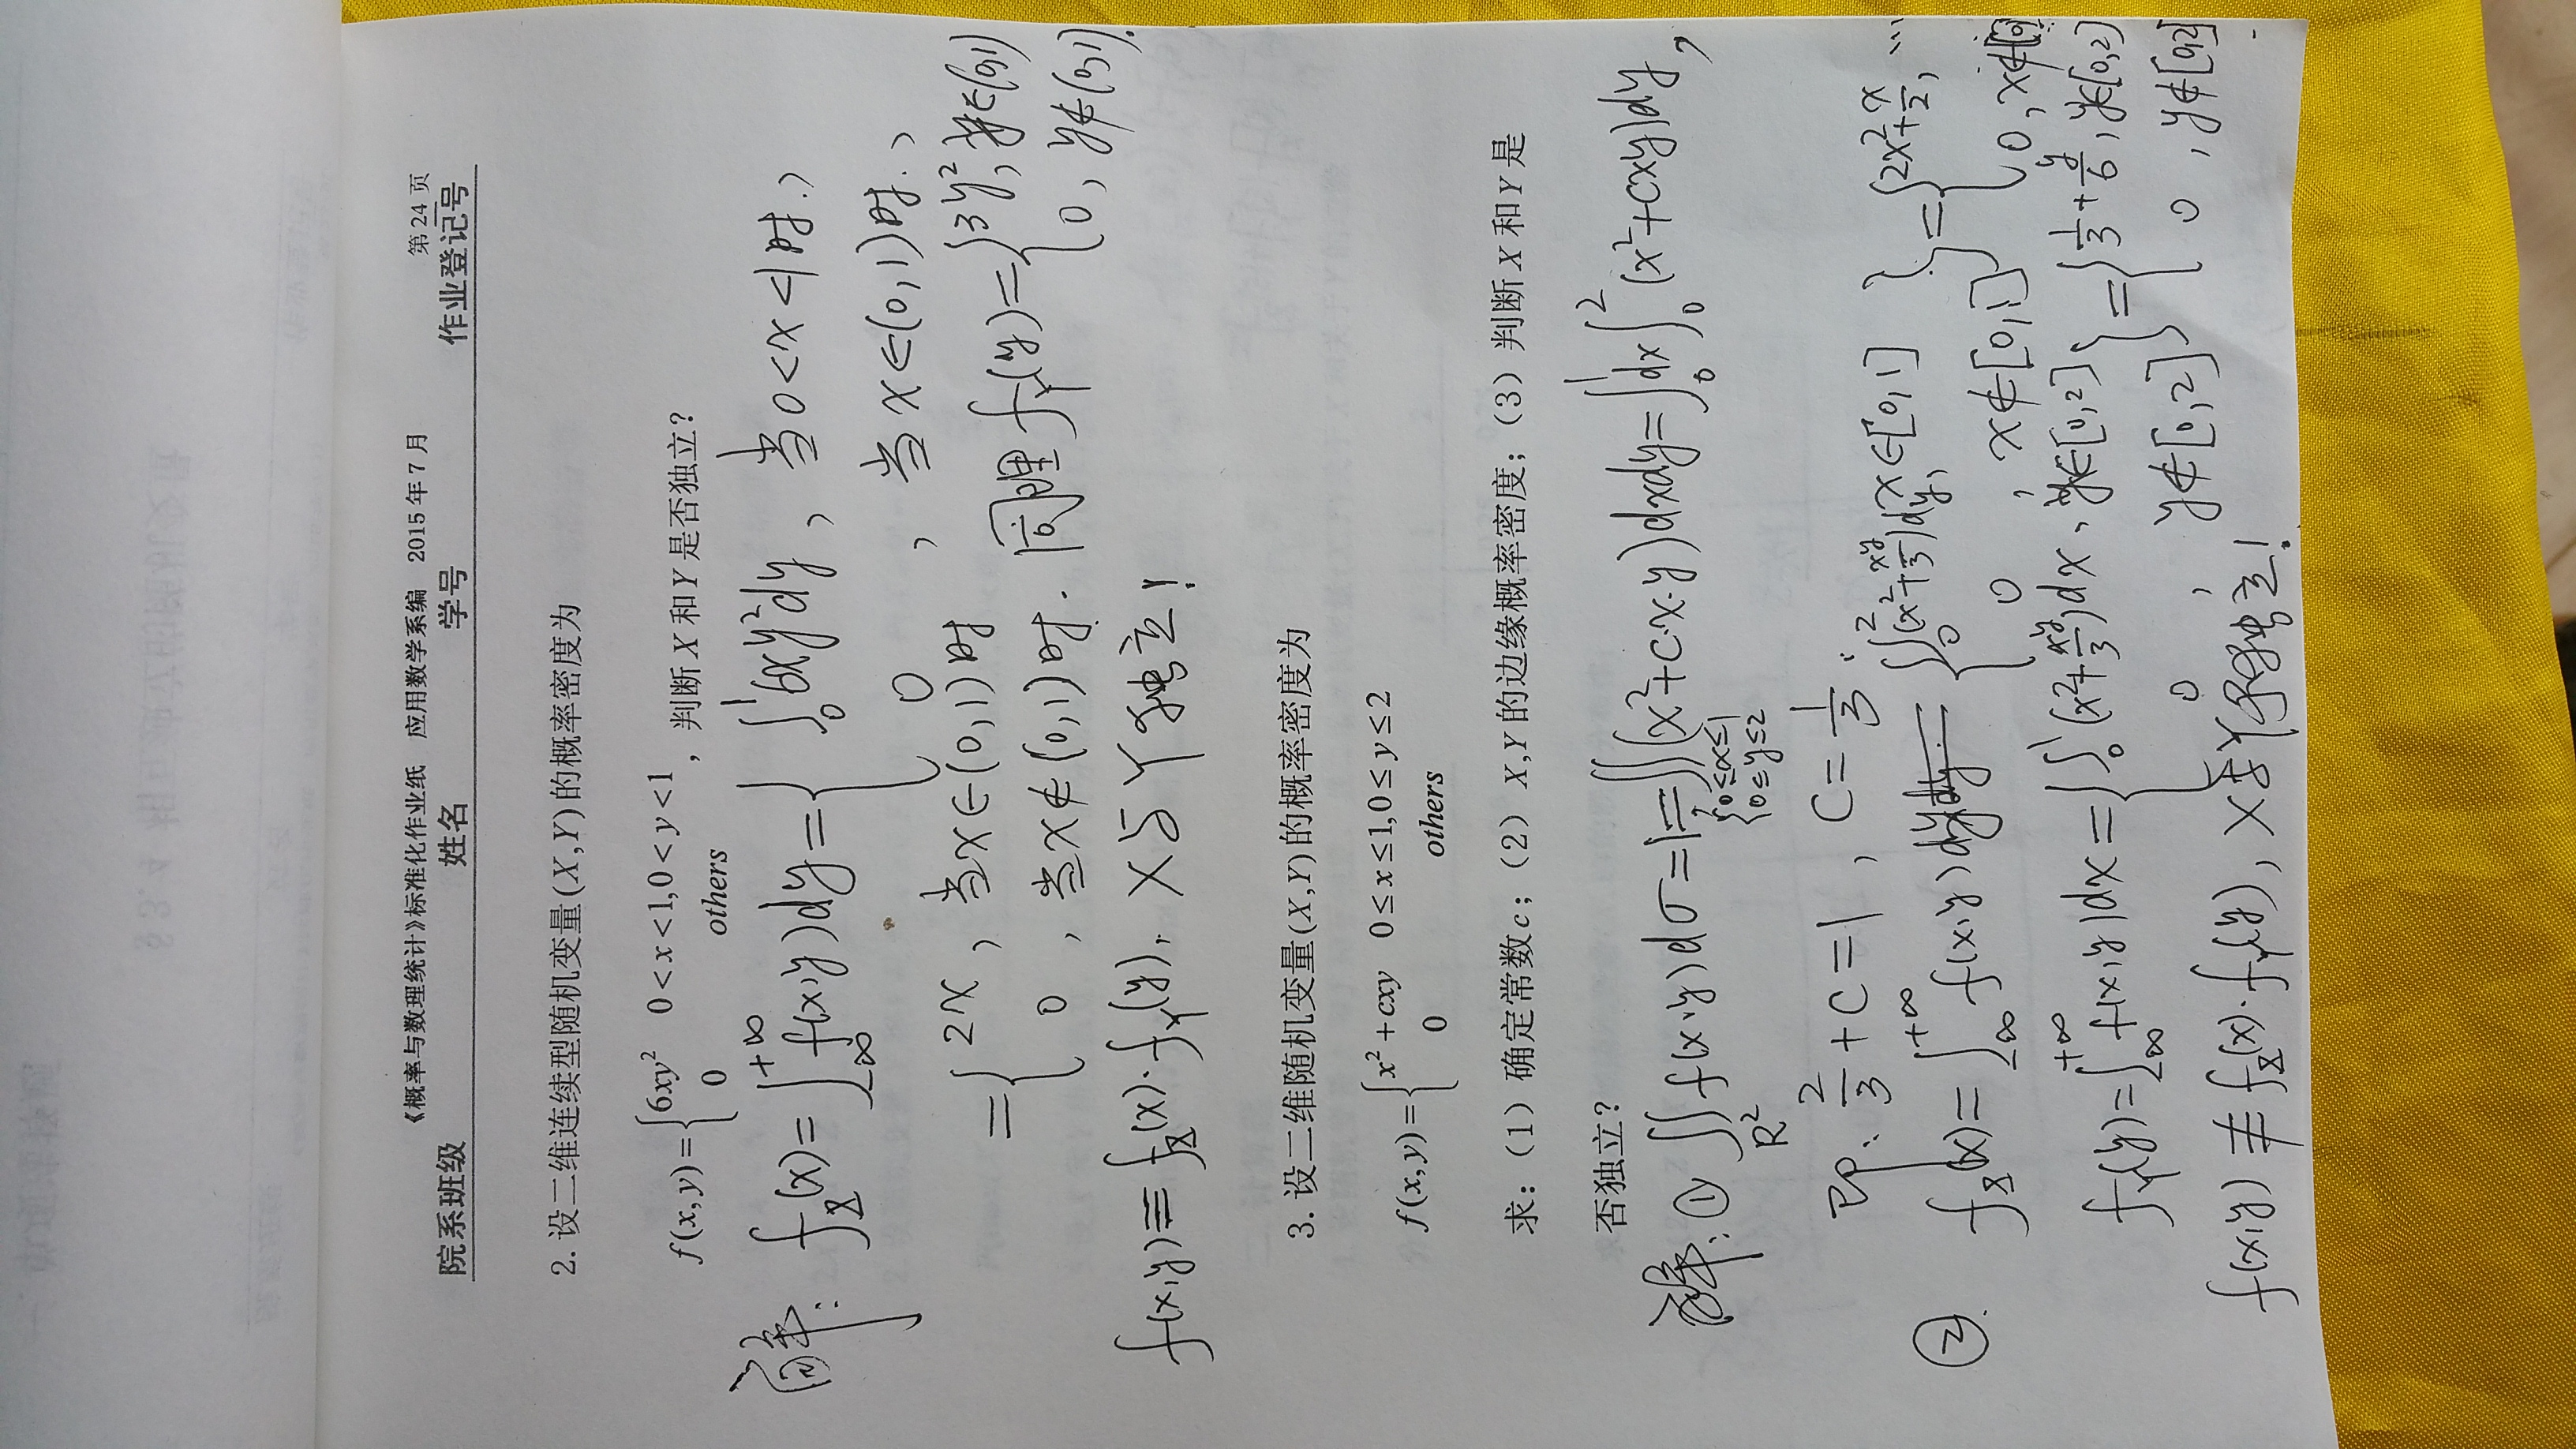 《概率与数理统计》标准化作业纸 应用数学系编 2015年7月 第24页
院系班级 姓名 学号 作业登记号
2. 设二维连续型随机变量(X,Y)的概率密度为
f(x,y)={6xy² 0<x<1,0<y<1
0 others ，判断X和Y是否独立？
解: f_X(x)=∫_{-∞}^{+∞} f(x,y)dy={∫_0^1 6xy²dy, 当0<x<1时,
0 , 当x∈(0,1)时,
={2x, 当x∈(0,1)时
0, 当x∉(0,1)时. 同理 f_Y(y)={3y², y∈(0,1)
0, y∉(0,1).
f(x,y)≡f_X(x)·f_Y(y), X与Y独立!
二. 计算题
3. 设二维随机变量(X,Y)的概率密度为
f(x,y)={x²+cxy 0≤x≤1,0≤y≤2
0 others
求：（1）确定常数c；（2）X,Y的边缘概率密度；（3）判断X和Y是
否独立？
解: ① ∬_{R²} f(x,y)dσ=1=∬_{0≤x≤1, 0≤y≤2}(x²+c·x·y)dxdy=∫_0^1 dx∫_0^2 (x²+cxy)dy,
即: 2/3+C=1, C=1/3.
②. f_X(x)=∫_{-∞}^{+∞} f(x,y)dy={∫_0^2 (x²+xy/3)dy, x∈[0,1]
0, x∉[0,1]}={2x²+x/2, …
0, x∉[0,1]
f_Y(y)=∫_{-∞}^{+∞} f(x,y)dx={∫_0^1 (x²+xy/3)dx, y∈[0,2]
0, y∉[0,2]}={1/3+y/6, y∈[0,2]
0, y∉[0,2]
f(x,y)≢f_X(x)·f_Y(y), X与Y不独立!